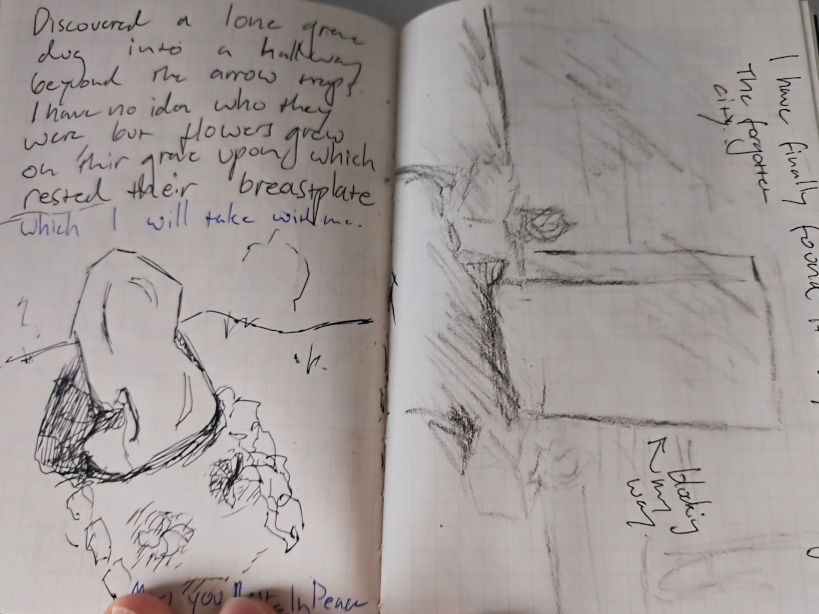 Discovered a lone grave
dug into a hallway
beyond the arrow traps.
I have no idea who they
were but flowers grew
on thir grave upon which
rested their breastplate
which I will take with me.
May you Rest In Peace
I have finally found it
The forgotten
city.
blocking
my
way.